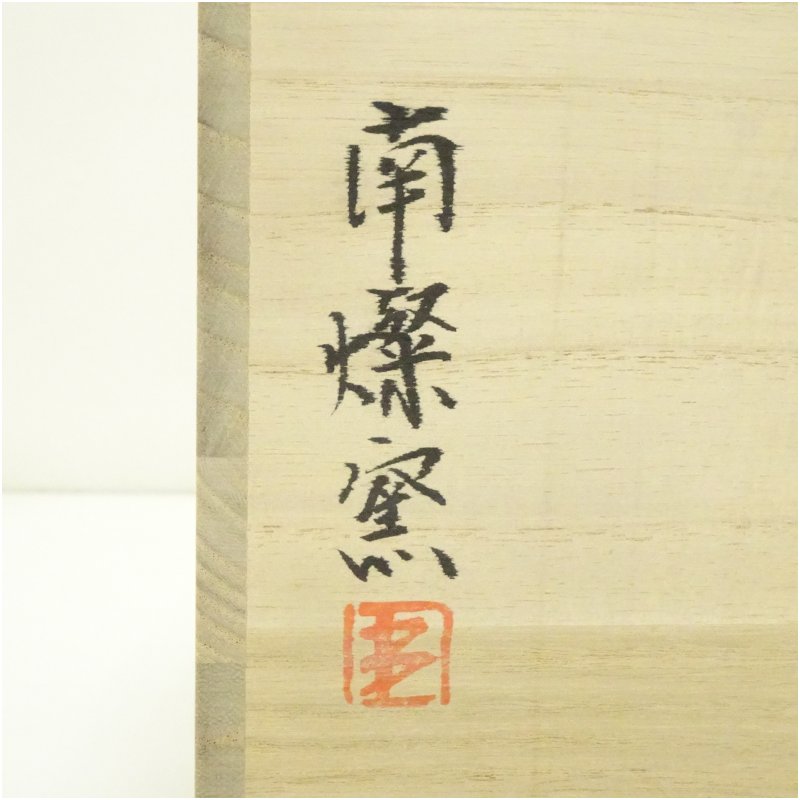 南燦窯